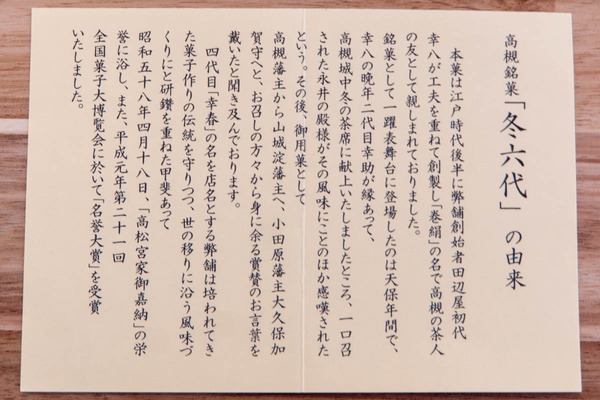 高槻銘菓「冬六代」の由来
本菓は江戸時代後半に弊舗創始者田辺屋初代
幸八が工夫を重ねて創製し「巻絹」の名で高槻の茶人
の友として親しまれておりました。
銘菓として一躍表舞台に登場したのは天保年間で、
幸八の晩年二代目幸助が縁あって、
高槻城中冬の茶席に献上いたしましたところ、一口召
された永井の殿様がその風味にことのほか感嘆された
という。その後、御用菓として
高槻藩主から山城淀藩主へ、小田原藩主大久保加
賀守へと、お召しの方々から身に余る賞賛のお言葉を
戴いたと聞き及んでおります。
四代目「幸春」の名を店名とする弊舗は培われてき
た菓子作りの伝統を守りつつ、世の移りに沿う風味づ
くりにと研鑽を重ねた甲斐あって
昭和五十八年四月十八日、「高松宮家御嘉納」の栄
誉に浴し、また、平成元年第二十一回
全国菓子大博覧会に於いて「名誉大賞」を受賞
いたしました。